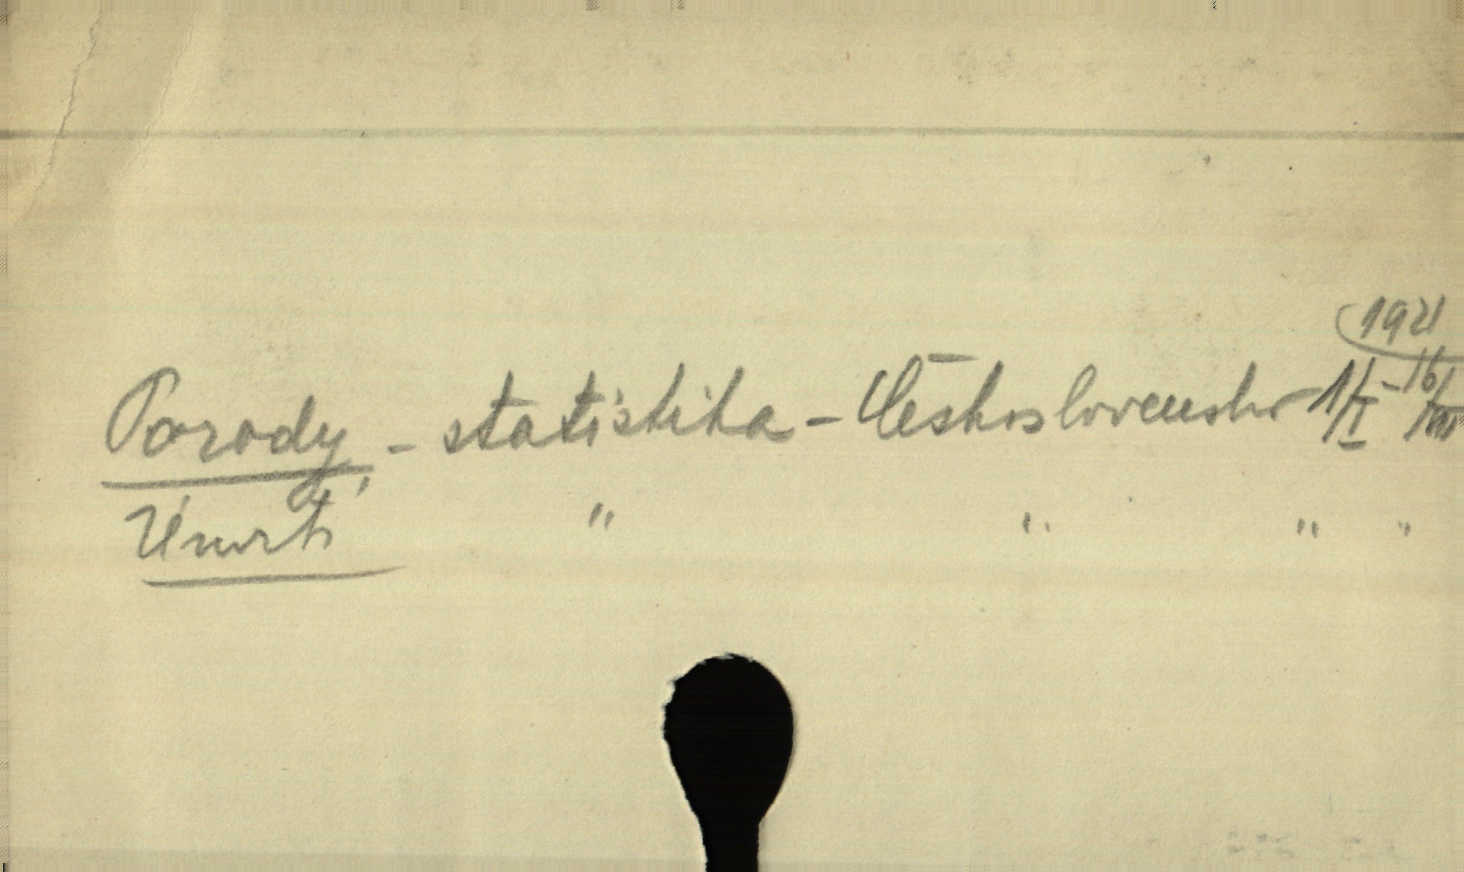 1921
Porody - statistika - Československo 1/I - 16/VIII
Úmrtí " " " "